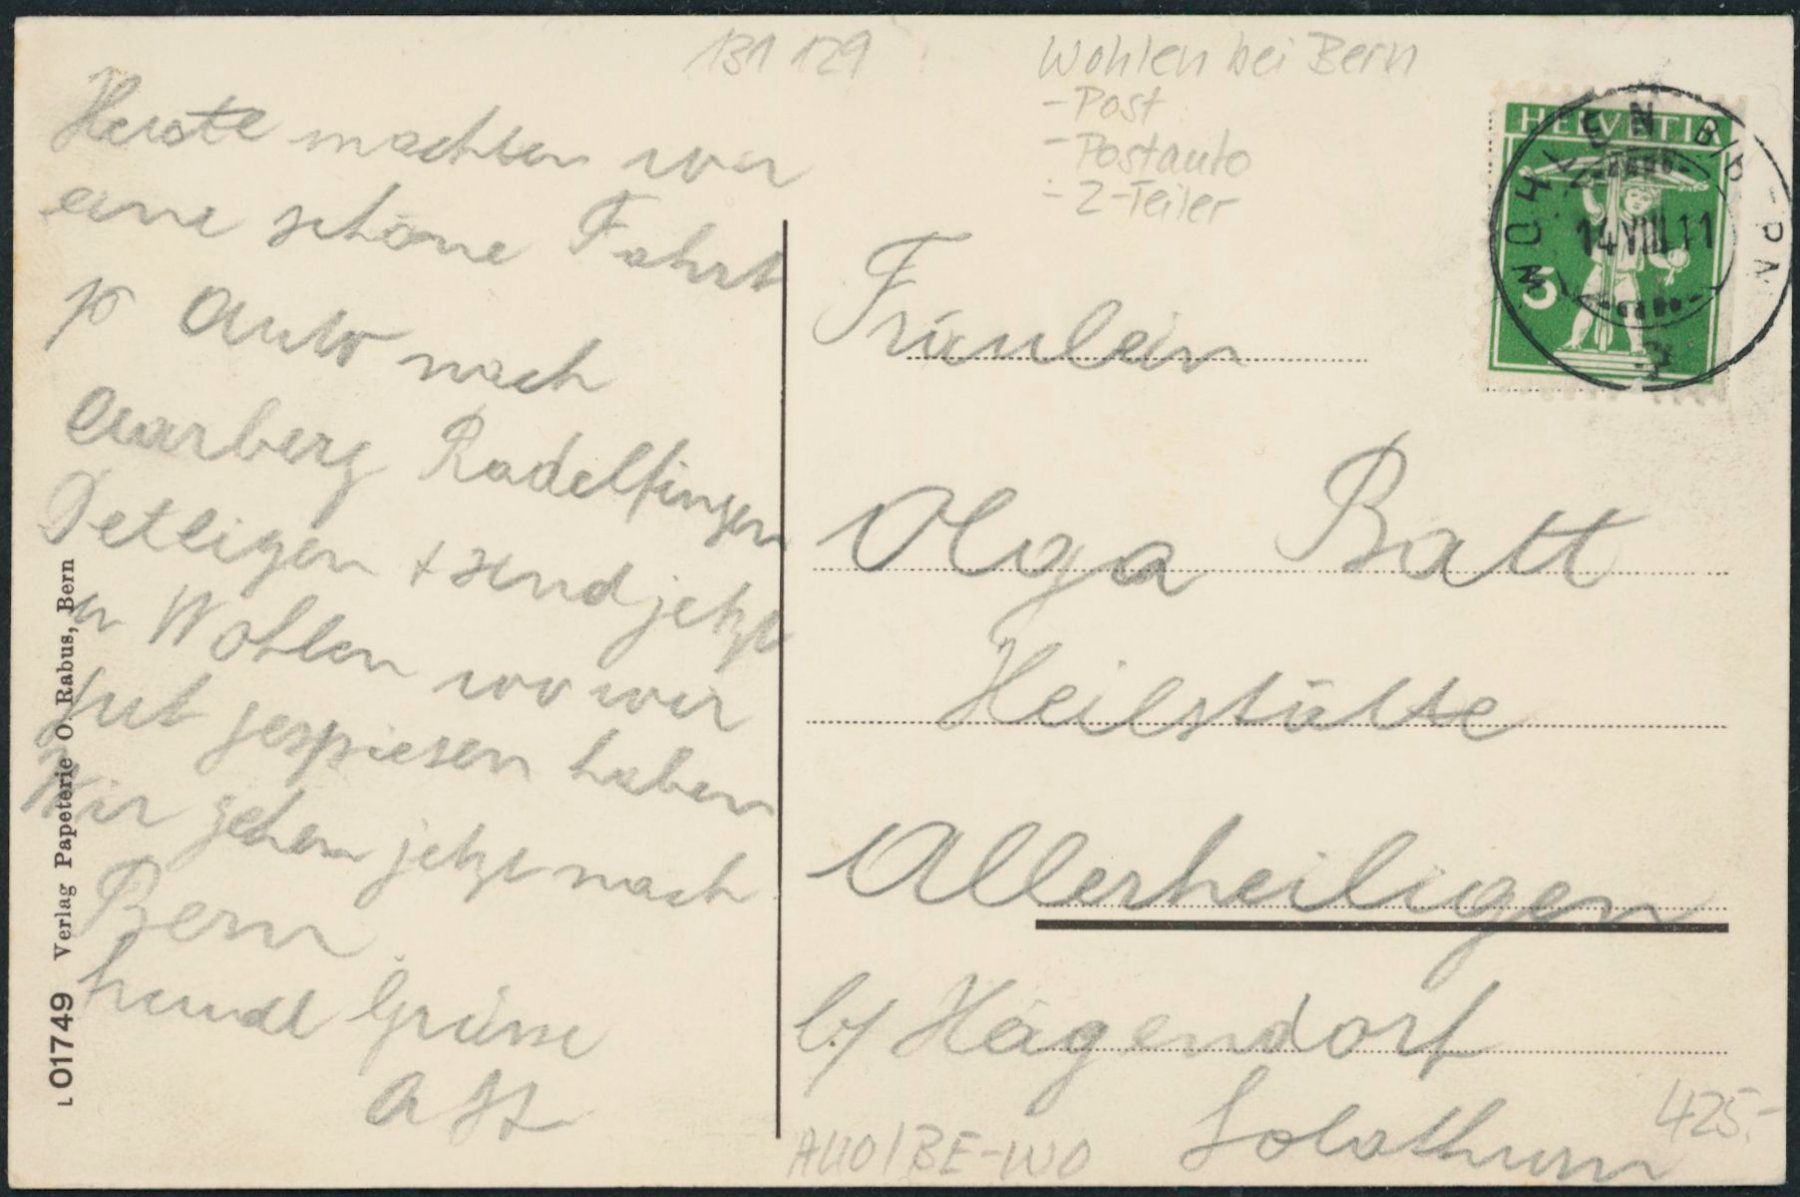 131 129
Wohlen bei Bern
- Post
- Postauto
- 2-Teiler
HELVETIA
5
WOHLEN
14.VIII.11
Heute machten wir
eine schöne Fahrt
p Auto nach
Aarberg Radelfingen
Detligen + sind jetzt
in Wohlen wo wir
gut gespiesen haben
Wir gehen jetzt nach
Bern.
freundl Grüsse
Fräulein
Olga Batt
Heilstätte
Allerheiligen
b/ Hägendorf
Solothurn
425.-
AUO/BE-WO
L 01749 Verlag Papeterie O. Rabus, Bern